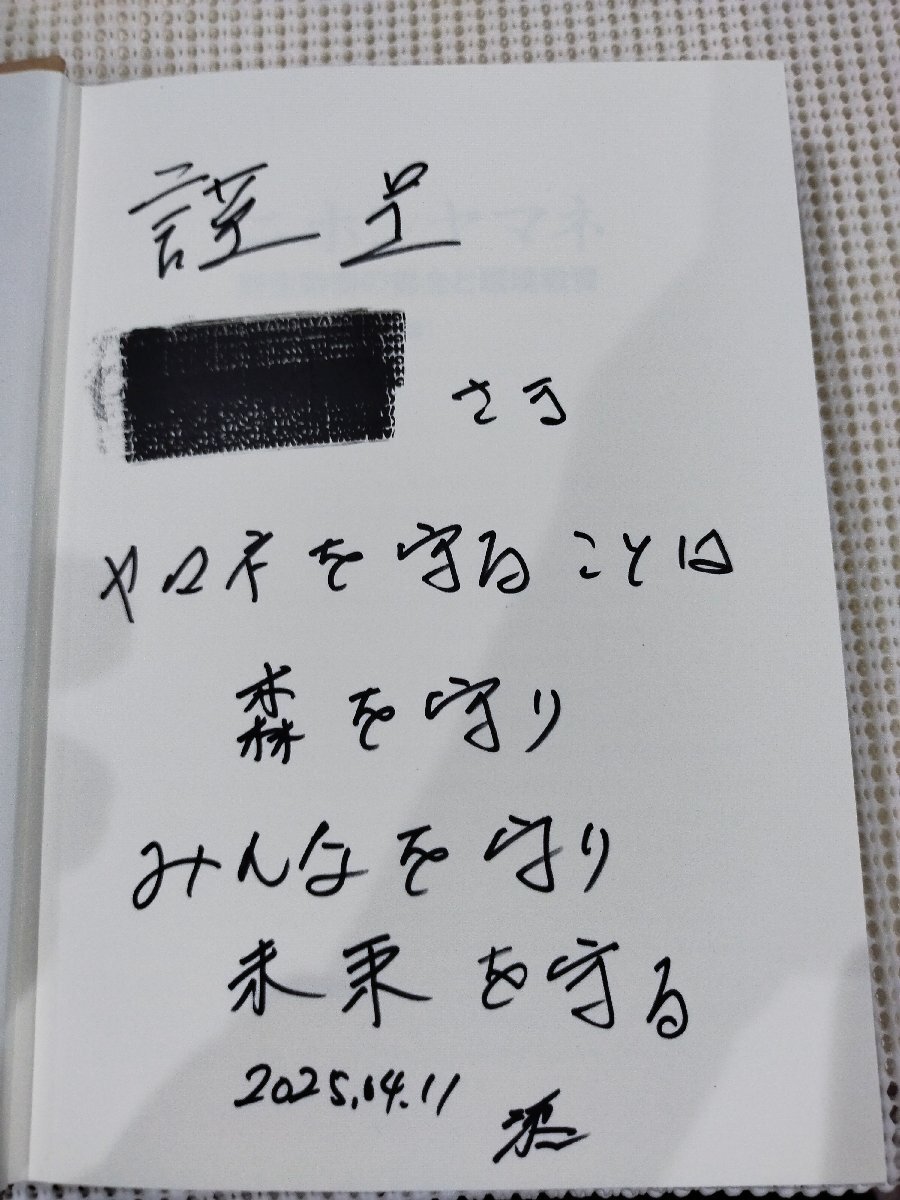 謹呈
さま
ヤマネを守ることは
森を守り
みんなを守り
未来を守る
2025.04.11